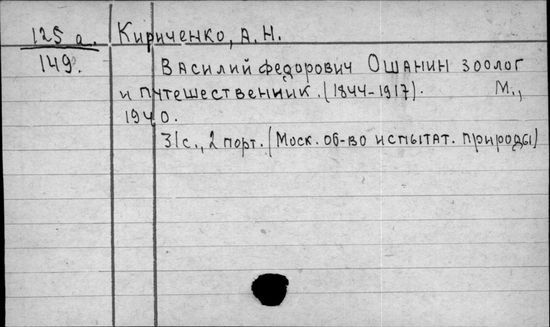 125 а. Кириченко, А. Н.
149. Василий Федорович Ошанин зоолог
и путешественник. (1844-1917). М.,
1940.
31с., 2 порт. (Моск. об-во испытат. природы)